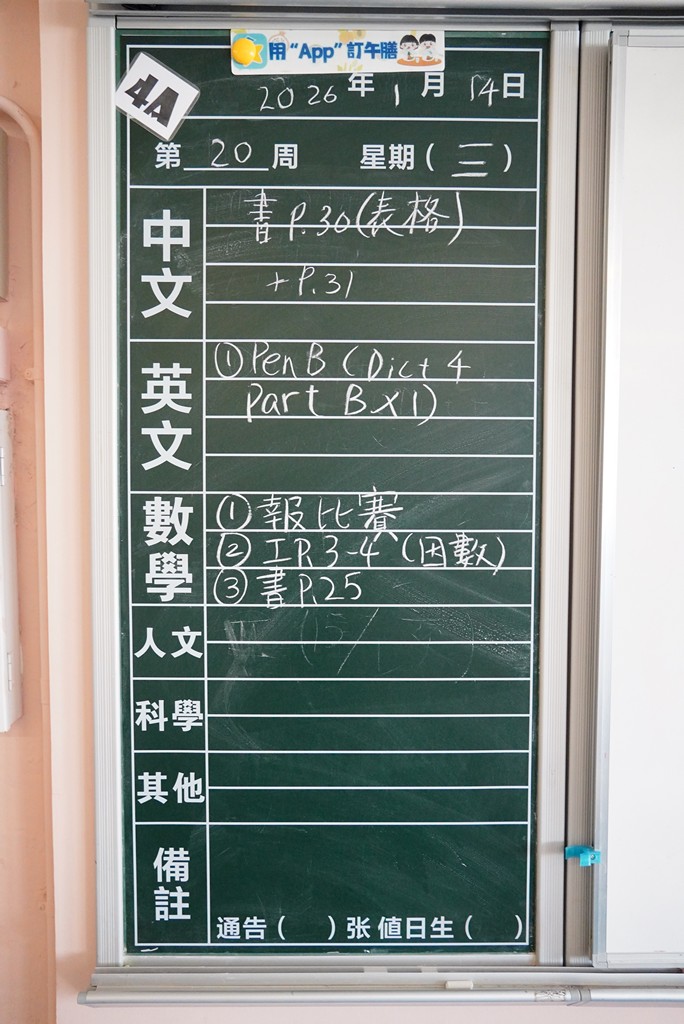 用 “App” 訂午膳
4A
2026 年 1 月 14 日
第 20 周 星期 ( 三 )
中文
書 P.30 (表格)
+ P.31
英文
① Pen B ( Dict 4
Part B x 1)
數學
① 報比賽
② 工 P.3-4 (因數)
③ 書 P.25
人文
科學
其他
備註
通告 ( ) 张 值日生 ( )